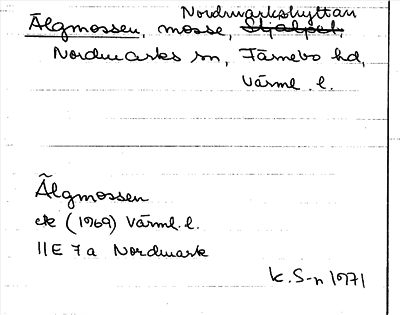 Nordmarkshyttan
Älgmossen, mosse, Stjälpet,
Nordmarks sn, Färnebo hd,
Värml. l.
Älgmossen
ek (1969) Värml. l.
11E 7a Nordmark
K. S-n 1971